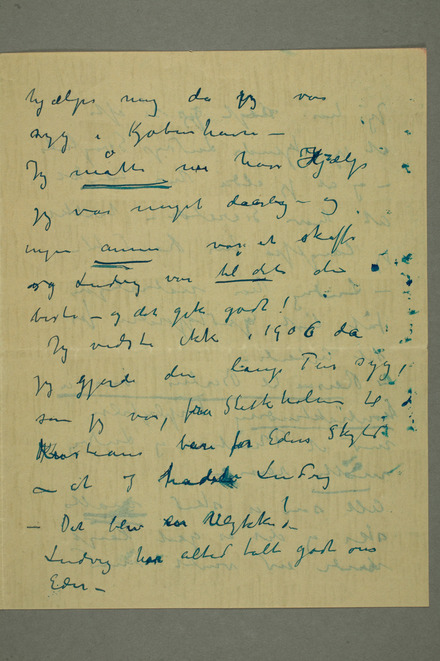 hjælpe mig da jeg var
syg i Kjøbenhavn –
Jeg måtte nu have Hjælp
jeg var meget daarlig – og
ingen annen var at skaffe
og Ludvig var til det den
beste – og det gik godt!
Jeg vidste ikke i 1906 da
jeg gjorde den lange Tur syg,
som jeg var, fra Stokholm til
Kristiania bare for Eders Skyld
– at I hadde Ludvig
– Det blev en Ulykke!
Ludvig har altid talt godt om
Eder –